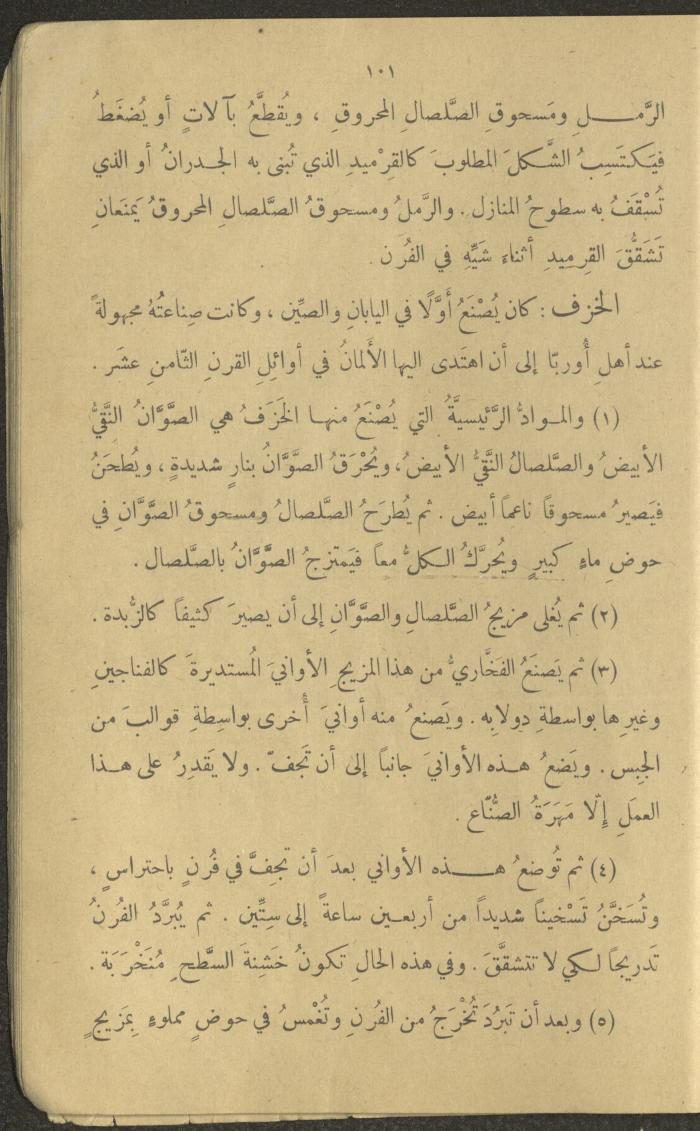 ١٠١
الرَّمـــلِ ومَسحوقِ الصَّلصالِ المحروقِ ، ويُقطَّعُ بآلاتٍ أو يُضغَطُ
فيَكتَسِبُ الشَّكلَ المطلوبَ كالقِرْميدِ الذي تُبنى به الجدرانُ أو الذي
تُسْقَفُ به سطوحُ المنازل . والرَّملُ ومسحوقُ الصَّلصالِ المحروقُ يَمنَعانِ
تَشَقُّقَ القرِميدِ أثناء شَيِّهِ في الفُرن .
الخزف : كان يُصْنَعُ أَوَّلًا في اليابانِ والصِّين ، وكانت صِناعتُهُ مجهولةً
عند أهلِ أُوربّا إلى أن اهتَدى اليها الأَلمانُ في أوائلِ القرنِ الثّامنِ عشَر .
(١) والمـوادُّ الرَّئيسيَّةُ التي يُصْنَعُ منهـا الخَزَفُ هي الصَّوَّانُ النَّقيُّ
الأبيضُ والصَّلصالُ النَّقيُّ الأبيضُ، ويُحْرَقُ الصَّوَّانُ بنارٍ شديدةٍ ، ويُطحَنُ
فيَصيرُ مسحوقاً ناعماً أبيض . ثم يُطرَحُ الصَّلصالُ ومسحوقُ الصَّوَّانِ في
حوضِ ماءٍ كبيرٍ ويُحرَّكُ الـكلُّ معاً فيَمتزجُ الصَّوَّانُ بالصَّلصال .
(٢) ثم يُغلى مزيجُ الصَّلصالِ والصَّوَّانِ إلى أن يصيرَ كثيفاً كالزُّبدة .
(٣) ثم يَصنَعُ الفَخَّاريُّ من هذا المزيجِ الأوانيَ المُستديرةَ كالفناجينِ
وغيرِها بواسطةِ دولابِه . ويَصنعُ منه أوانيَ أُخرى بواسِطةِ قوالبَ من
الجبِس . ويَضعُ هـذه الأوانيَ جانباً إلى أن تَجفّ . ولا يَقدِرُ على هـذا
العملِ إلّا مَهَرَةُ الصُّنّاع .
(٤) ثم تُوضعُ هـــذه الأواني بعدَ أن تجفَّ في فُرنٍ باحتراسٍ ،
وتُسَخَّنُ تَسْخيناً شديداً من أربعـين ساعةً إلى سِتّين . ثم يُبرَّدُ الفُرنُ
تَدريجاً لـكي لا تتشقَّقَ . وفي هذه الحالِ تكونُ خَشِنةَ السَّطحِ مُنَخْرَبَة .
(٥) وبعد أن تَبَرُدَ تُخْرَجُ من الفُرنِ وتُغْمسُ في حوضٍ مملوءٍ بِمَزيجٍ